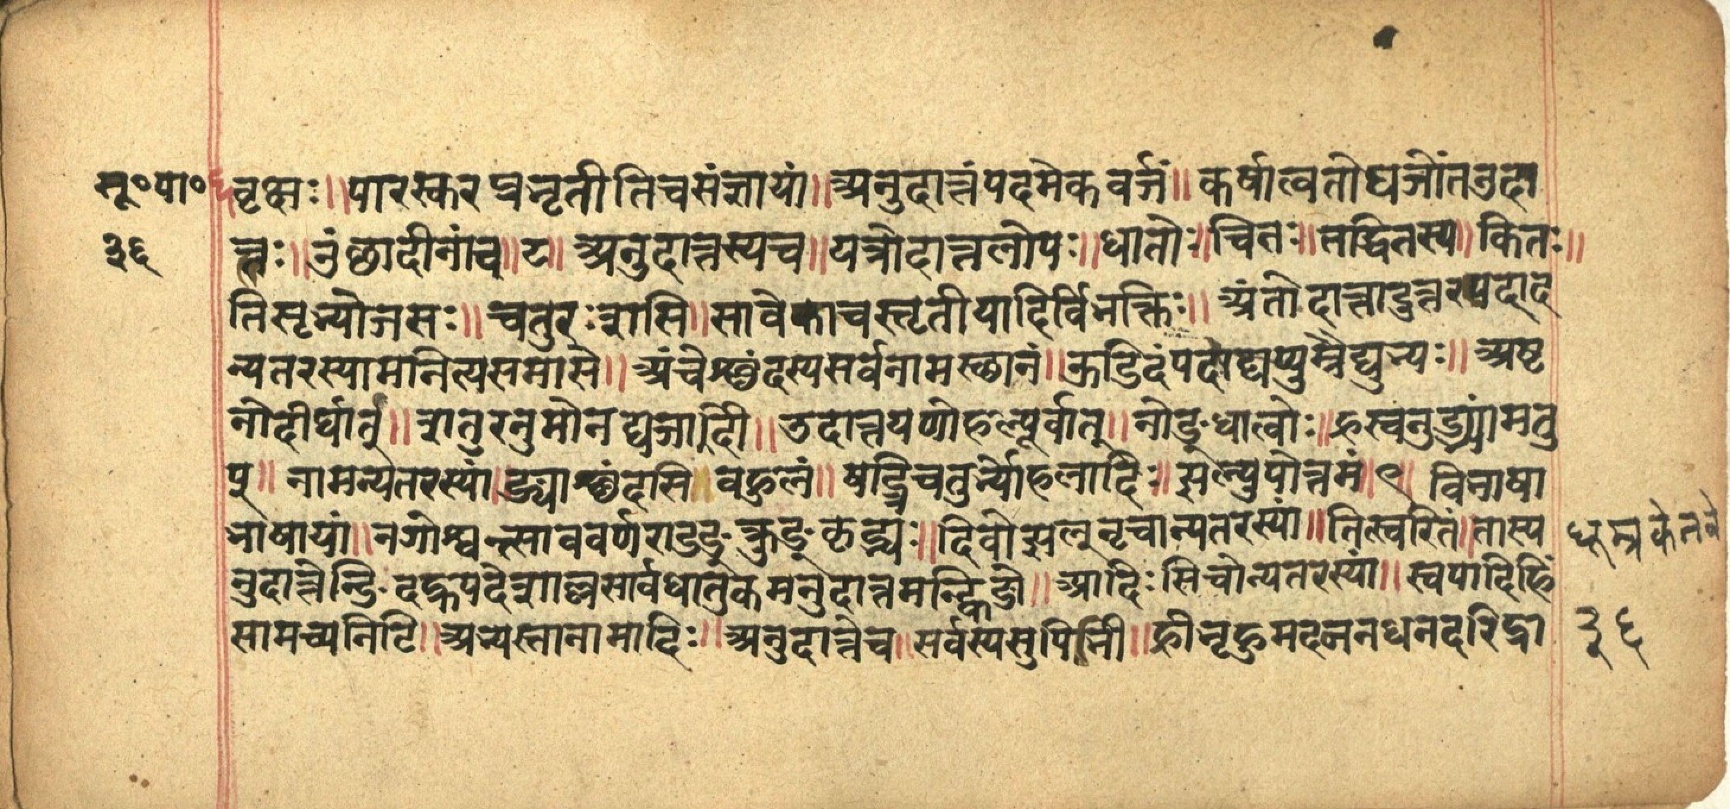 सू०पा० वृक्षः॥पारस्करप्रभृतीतिचसंज्ञायां॥अनुदात्तंपदमेकवर्जं॥कर्षात्वतोघञोंतउदा
३६ त्तः॥उंछादीनांच॥८॥अनुदात्तस्यच॥यत्रोदात्तलोपः॥धातोः॥चितः॥तद्धितस्य॥कितः॥
तिसृभ्योजसः॥चतुरःशसि॥सावेकाचस्तृतीयादिर्विभक्तिः॥अंतोदात्तादुत्तरपदाद
न्यतरस्यामनित्यसमासे॥अंचेश्छंदस्यसर्वनामस्थानं॥ऊडिदंपदाद्यप्पुम्रैद्युभ्यः॥अष्ट
नोदीर्घात्॥शतुरनुमोनद्यजादी॥उदात्तयणोहल्पूर्वात्॥नोङ्धात्वोः॥ह्रस्वनुड्भ्यांमतु
प्॥नामन्यतरस्यां॥ङ्याश्छंदसिबहुलं॥षट्त्रिचतुर्भ्योहलादिः॥झल्युपोत्तमं॥९॥विभाषा
भाषायां॥नगोश्वन्त्साववर्णराडङ्क्रुङ्कृद्भ्यः॥दिवोझल्॥नृचान्यतरस्यां॥तित्स्वरितं॥तास्य
नुदात्तेन्ङिददुपदेशाल्लसार्वधातुकमनुदात्तमन्ह्विङोः॥आदिःसिचोन्यतरस्यां॥स्वपादिहिं
सामच्यनिटि॥अभ्यस्तानामादिः॥अनुदात्तेच॥सर्वस्यसुपि॥भीह्रीभृहुमदजनधनदरिद्रा
३६